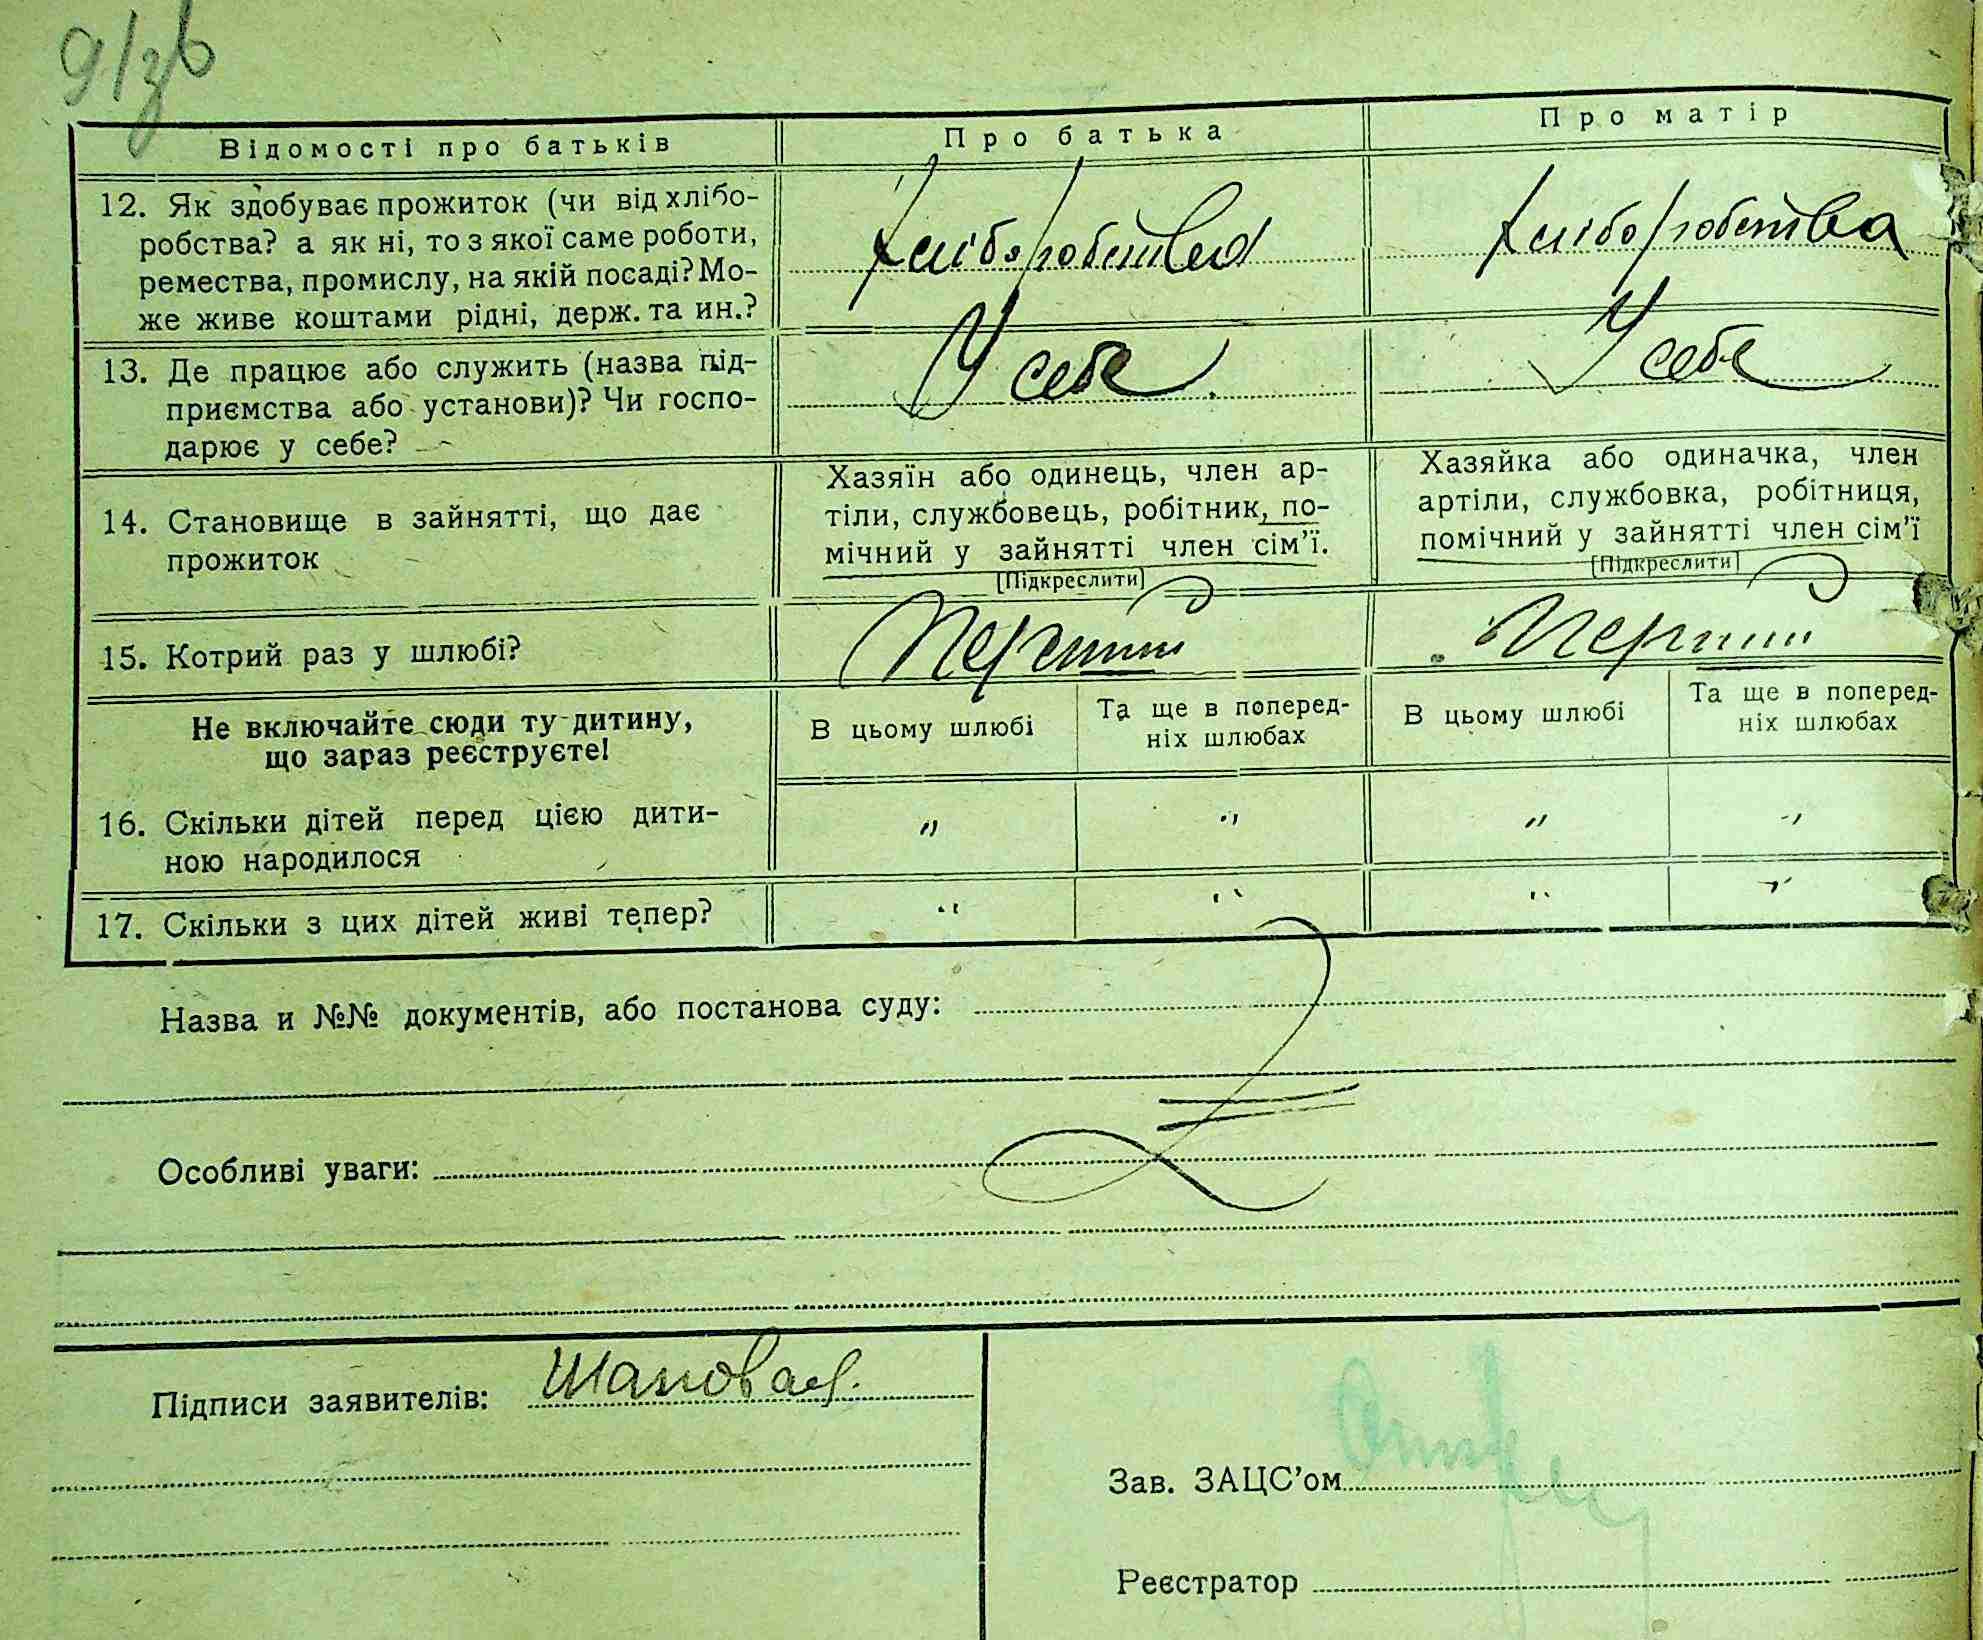 9/зв
Відомості про батьків
Про батька
Про матір
12. Як здобуває прожиток (чи від хлібо-
робства? а як ні, то з якої саме роботи,
ремества, промислу, на якій посаді? Мо-
же живе коштами рідні, держ. та ин.?
Хліборобства
Хліборобства
13. Де працює або служить (назва під-
приємства або установи)? Чи госпо-
дарює у себе?
У себе
У себе
14. Становище в зайнятті, що дає
прожиток
Хазяїн або одинець, член ар-
тіли, службовець, робітник, по-
мічний у зайнятті член сім'ї.
[Підкреслити]
Хазяйка або одиначка, член
артіли, службовка, робітниця,
помічний у зайнятті член сім'ї
[Підкреслити]
15. Котрий раз у шлюбі?
Перший
Перший
Не включайте сюди ту дитину,
що зараз реєструєте!
В цьому шлюбі
Та ще в поперед-
ніх шлюбах
В цьому шлюбі
Та ще в поперед-
ніх шлюбах
16. Скільки дітей перед цією дити-
ною народилося
" " " "
17. Скільки з цих дітей живі тепер?
" " " "
Назва и №№ документів, або постанова суду:
Особливі уваги:
Підписи заявителів: Шаповал
Зав. ЗАЦС'ом
Реєстратор